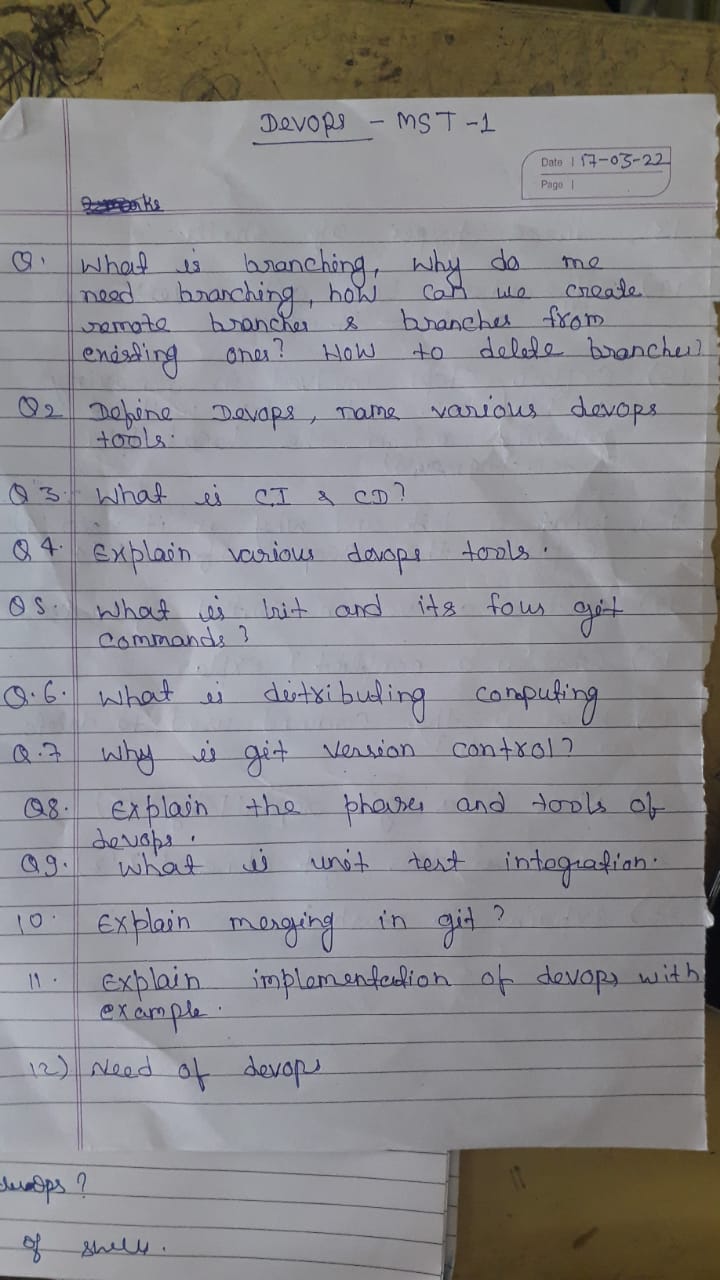 Devops - MST-1
Date 17-03-22
Page
Q. What is branching, why do me
need branching, how can we create
remote branches & branches from
existing ones? How to delete branches?
Q2 Define Devops, name various devops
tools.
Q3. What is CI & CD?
Q4. Explain various devops tools.
Q5. What is Git and its four git
commands?
Q.6. What is distributing computing
Q.7 Why is git version control?
Q8. Explain the phases and tools of
devops.
Q9. What is unit test integration.
10. Explain merging in git?
11. Explain implementation of devops with
example.
12) Need of devops
devops?
of shell.